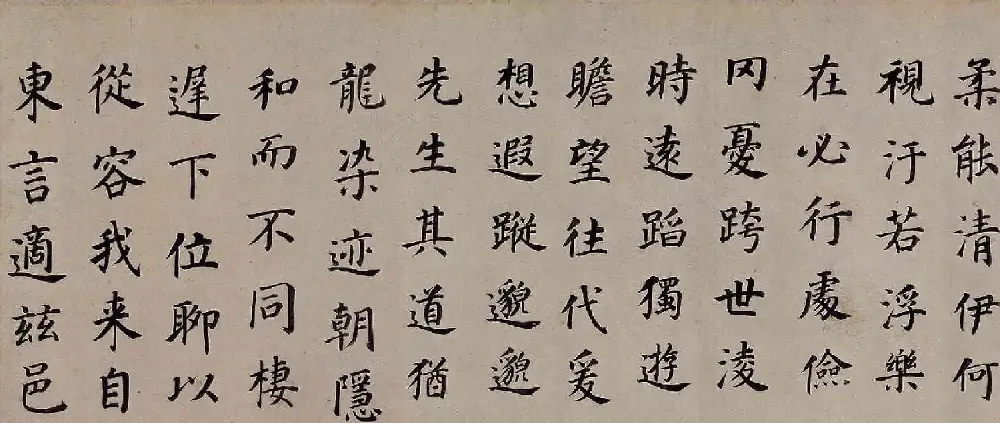 柔能清伊何
視汙若浮樂
在必行處儉
冈憂跨世淩
時遠蹈獨遊
瞻望往代爰
想遐蹤邈邈
先生其道猶
龍染迹朝隱
和而不同棲
遟下位聊以
從容我来自
東言適兹邑